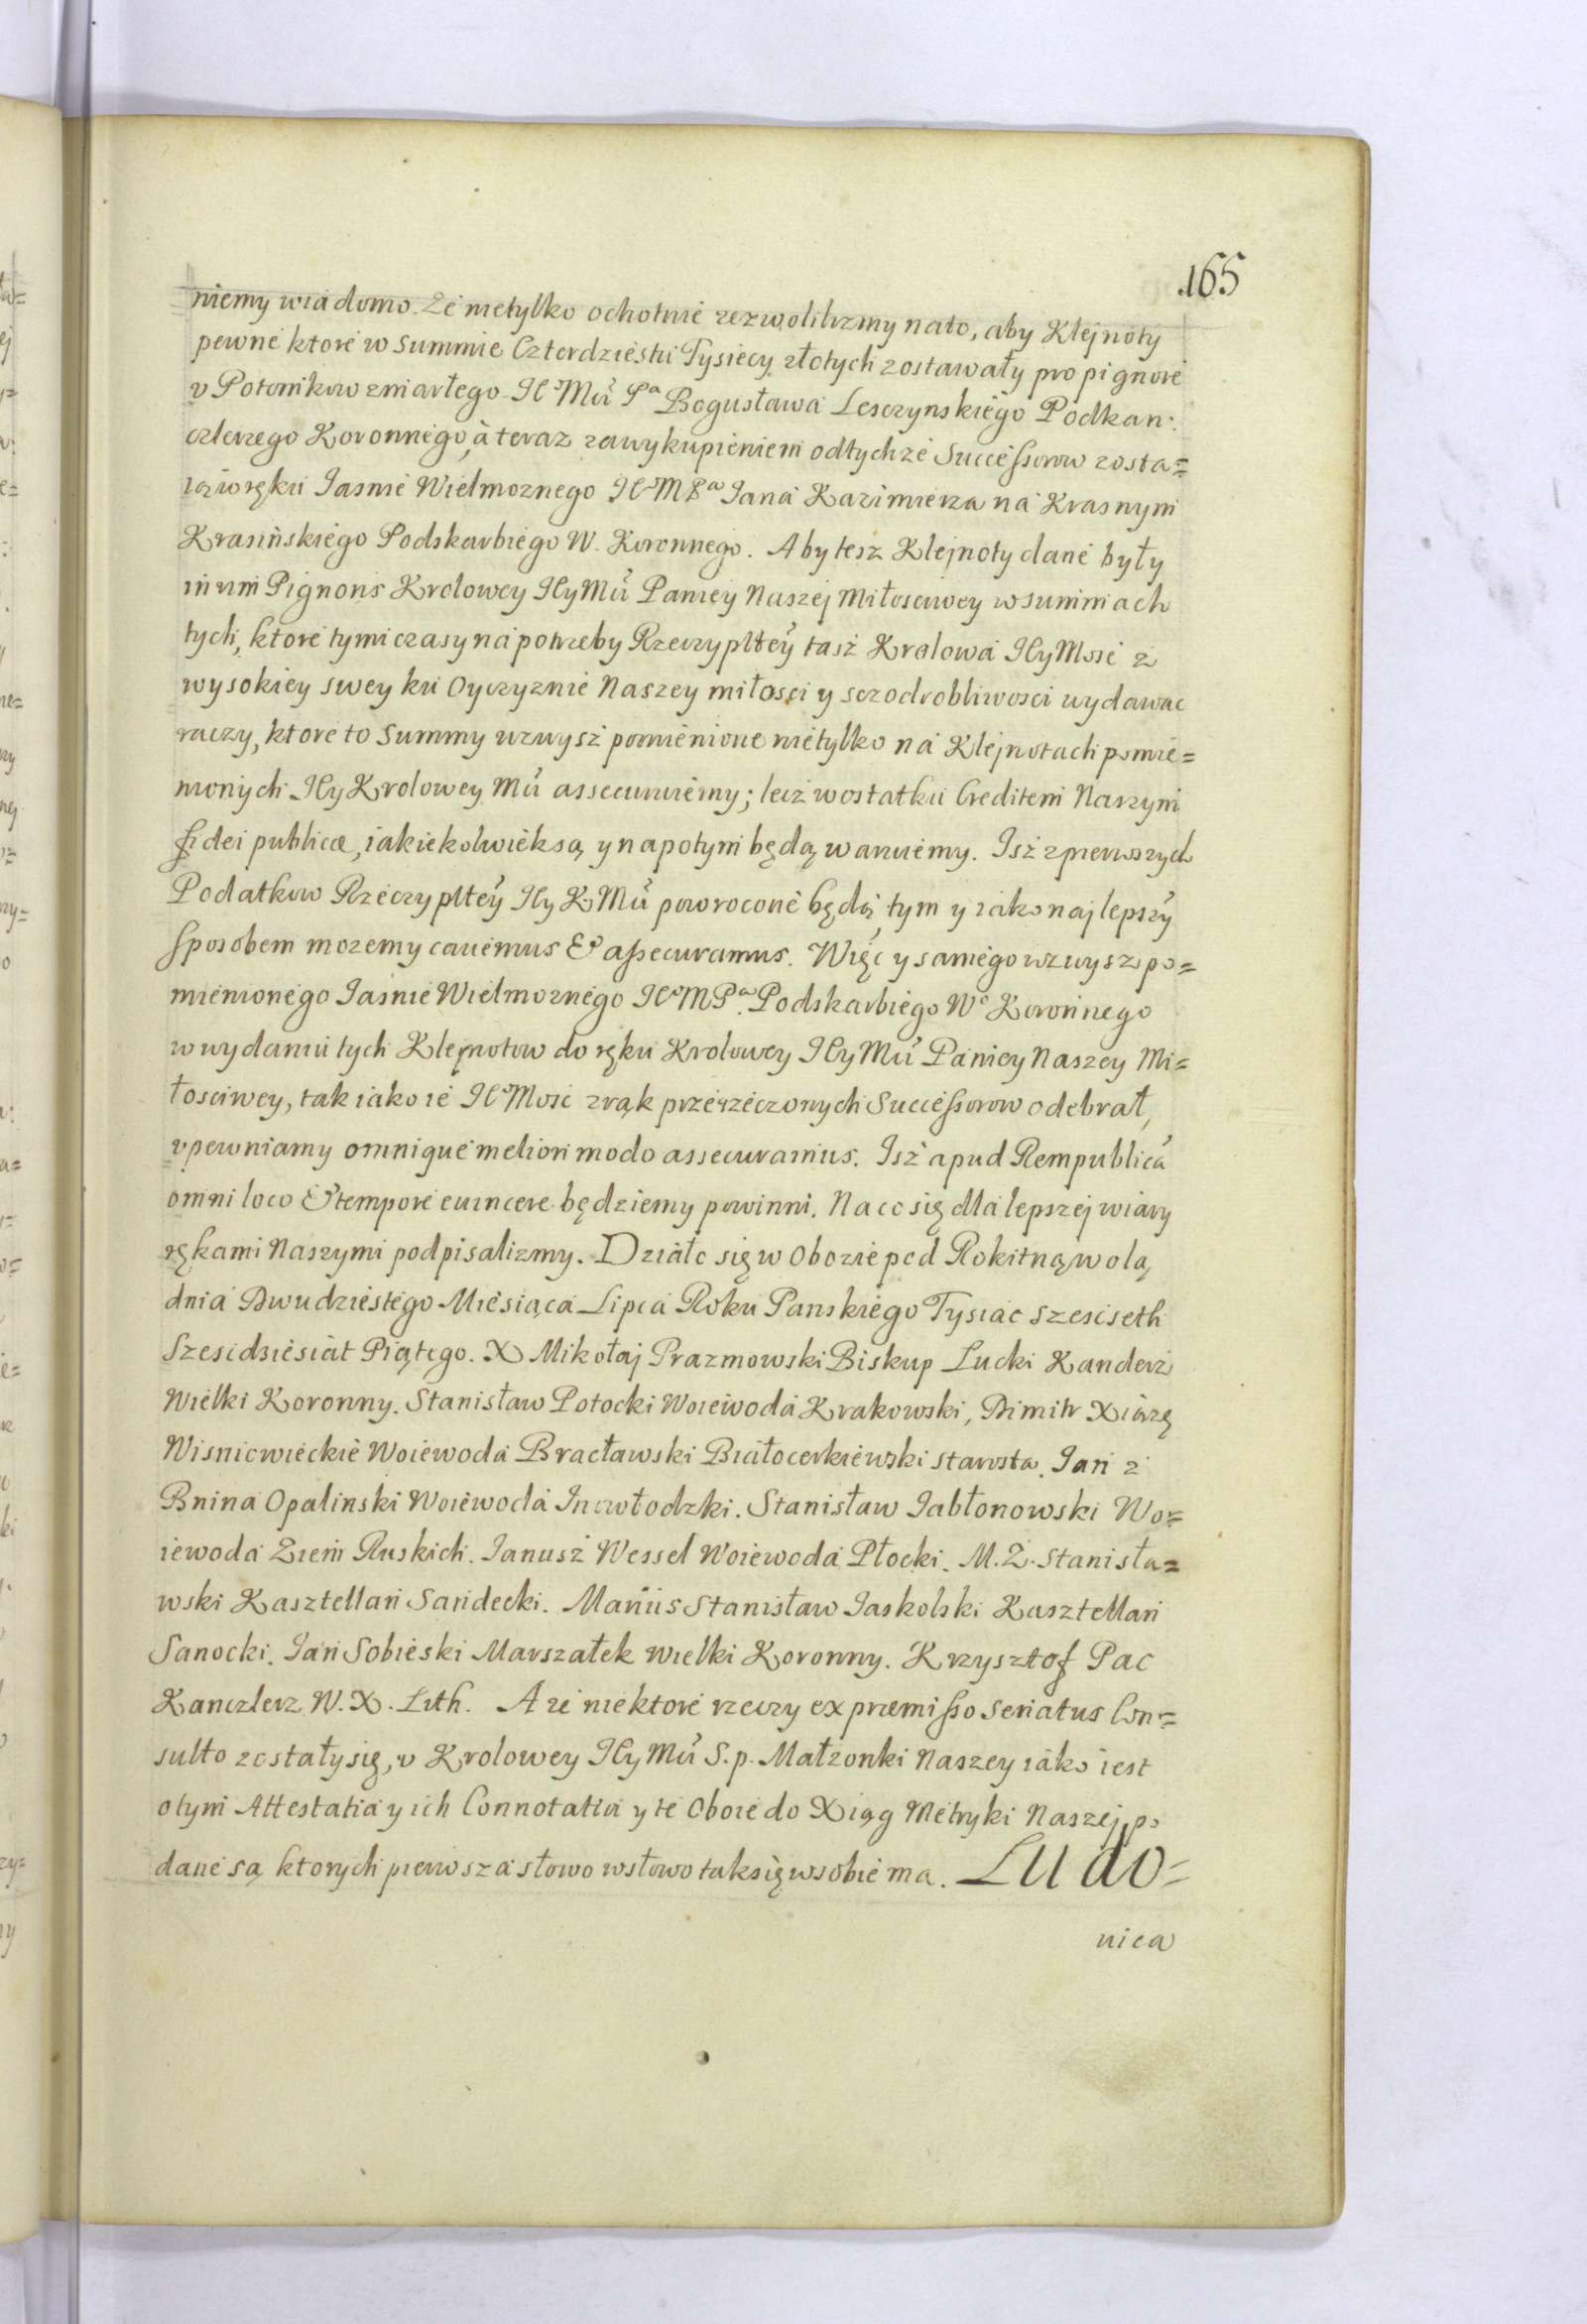 165
niemy wiadomo. Że nietylko ochotnie zezwolilizmy nato, aby Klejnoty
pewne ktore w Summie Czterdziestu Tysiecy złotych zostawały pro pignore
v Potomkow zmarłego Ie⁰ Mći Pᵃ Bogusława Lesczynskiego Podkan:
clerzego Koronnego, à teraz zawykupieniem odtychże Successorow zosta=
ią w ręku Iasnie Wielmoznego Ie⁰ M Pᵃ Iana Kazimierza na Krasnym
Krasińskiego Podskarbiego W. Koronnego. Aby tesz Klejnoty dane były
in vim Pignoris Krolowey Iey Mći Paniey Naszej Miłosciwey w summach
tych, ktore tymi czasy na potrzeby Rzeczypltey tasż Krolowa Iey Mosc z
wysokiey swey ku Oyczyznie Naszey miłosci y sczodrobliwosci wydawac
raczy, ktore to Summy wzwysż pomienione nietylko na Klejnotach pomie=
nionych Iey Krolowey Mći assecuruiemy; lecz wostatku Creditem Naszym
fidei publicæ, iakiekolwiek są, y napotym będą waruiemy. Isż zpierwszych
Podatkow Rzeczypltey Iey K. Mći powrocone będą, tym y iako najlepszy
sposobem mozemy cauemus & assecuramus. Więc y samego wzwysz po=
mienionego Iasnie Wielmoznego Ie⁰ M Pᵃ. Podskarbiego W⁰ Koronnego
w wydaniu tych Klejnotow do ręku Krolowey Iey Mći Paniey Naszey Mi=
łosciwey, tak iako ie Ie⁰ Mosc zrąk przerzeczonych Successorow odebrał,
vpewniamy omnique meliori modo assecuramus. Isż apud Rempublicā
omni loco & tempore euincere będziemy powinni. Na co się dla lepszej wiary
rękami Naszymi podpisalizmy. Działo się w Obozie pod Rokitną wolą
dnia Dwudziestego Miesiąca Lipca Roku Panskiego Tysiac Szescseth
Szescdziesiat Piątego. X Mikołaj Prazmowski Biskup Lucki Kanclerz
Wielki Koronny. Stanisław Potocki Woiewoda Krakowski, Dimitr Xiążę
Wisniowieckie Woiewoda Bracławski Białocerkiewski starosta. Ian z
Bnina Opalinski Woiewoda Inowłodzki. Stanisław Iabłonowski Wo=
iewoda Ziem Ruskich. Ianusż Wessel Woiewoda Płocki. M. Z. Stanisła=
wski Kasztellan Sandecki. Marius Stanisław Iaskolski Kasztellan
Sanocki. Ian Sobieski Marszałek Wielki Koronny. Krzysztof Pac
Kanclerz W. X. Lith. A ze niektore rzeczy ex præmisso Senatus Con=
sulto zostały się, v Krolowey Iey Mći S. p. Małzonki Naszey iako iest
otym Attestatia y ich Connotatia y te Oboie do Xiąg Metryki Naszej po
dane są, ktorych pierwsza słowo wsłowo tak się w sobie ma. Ludo=
uica